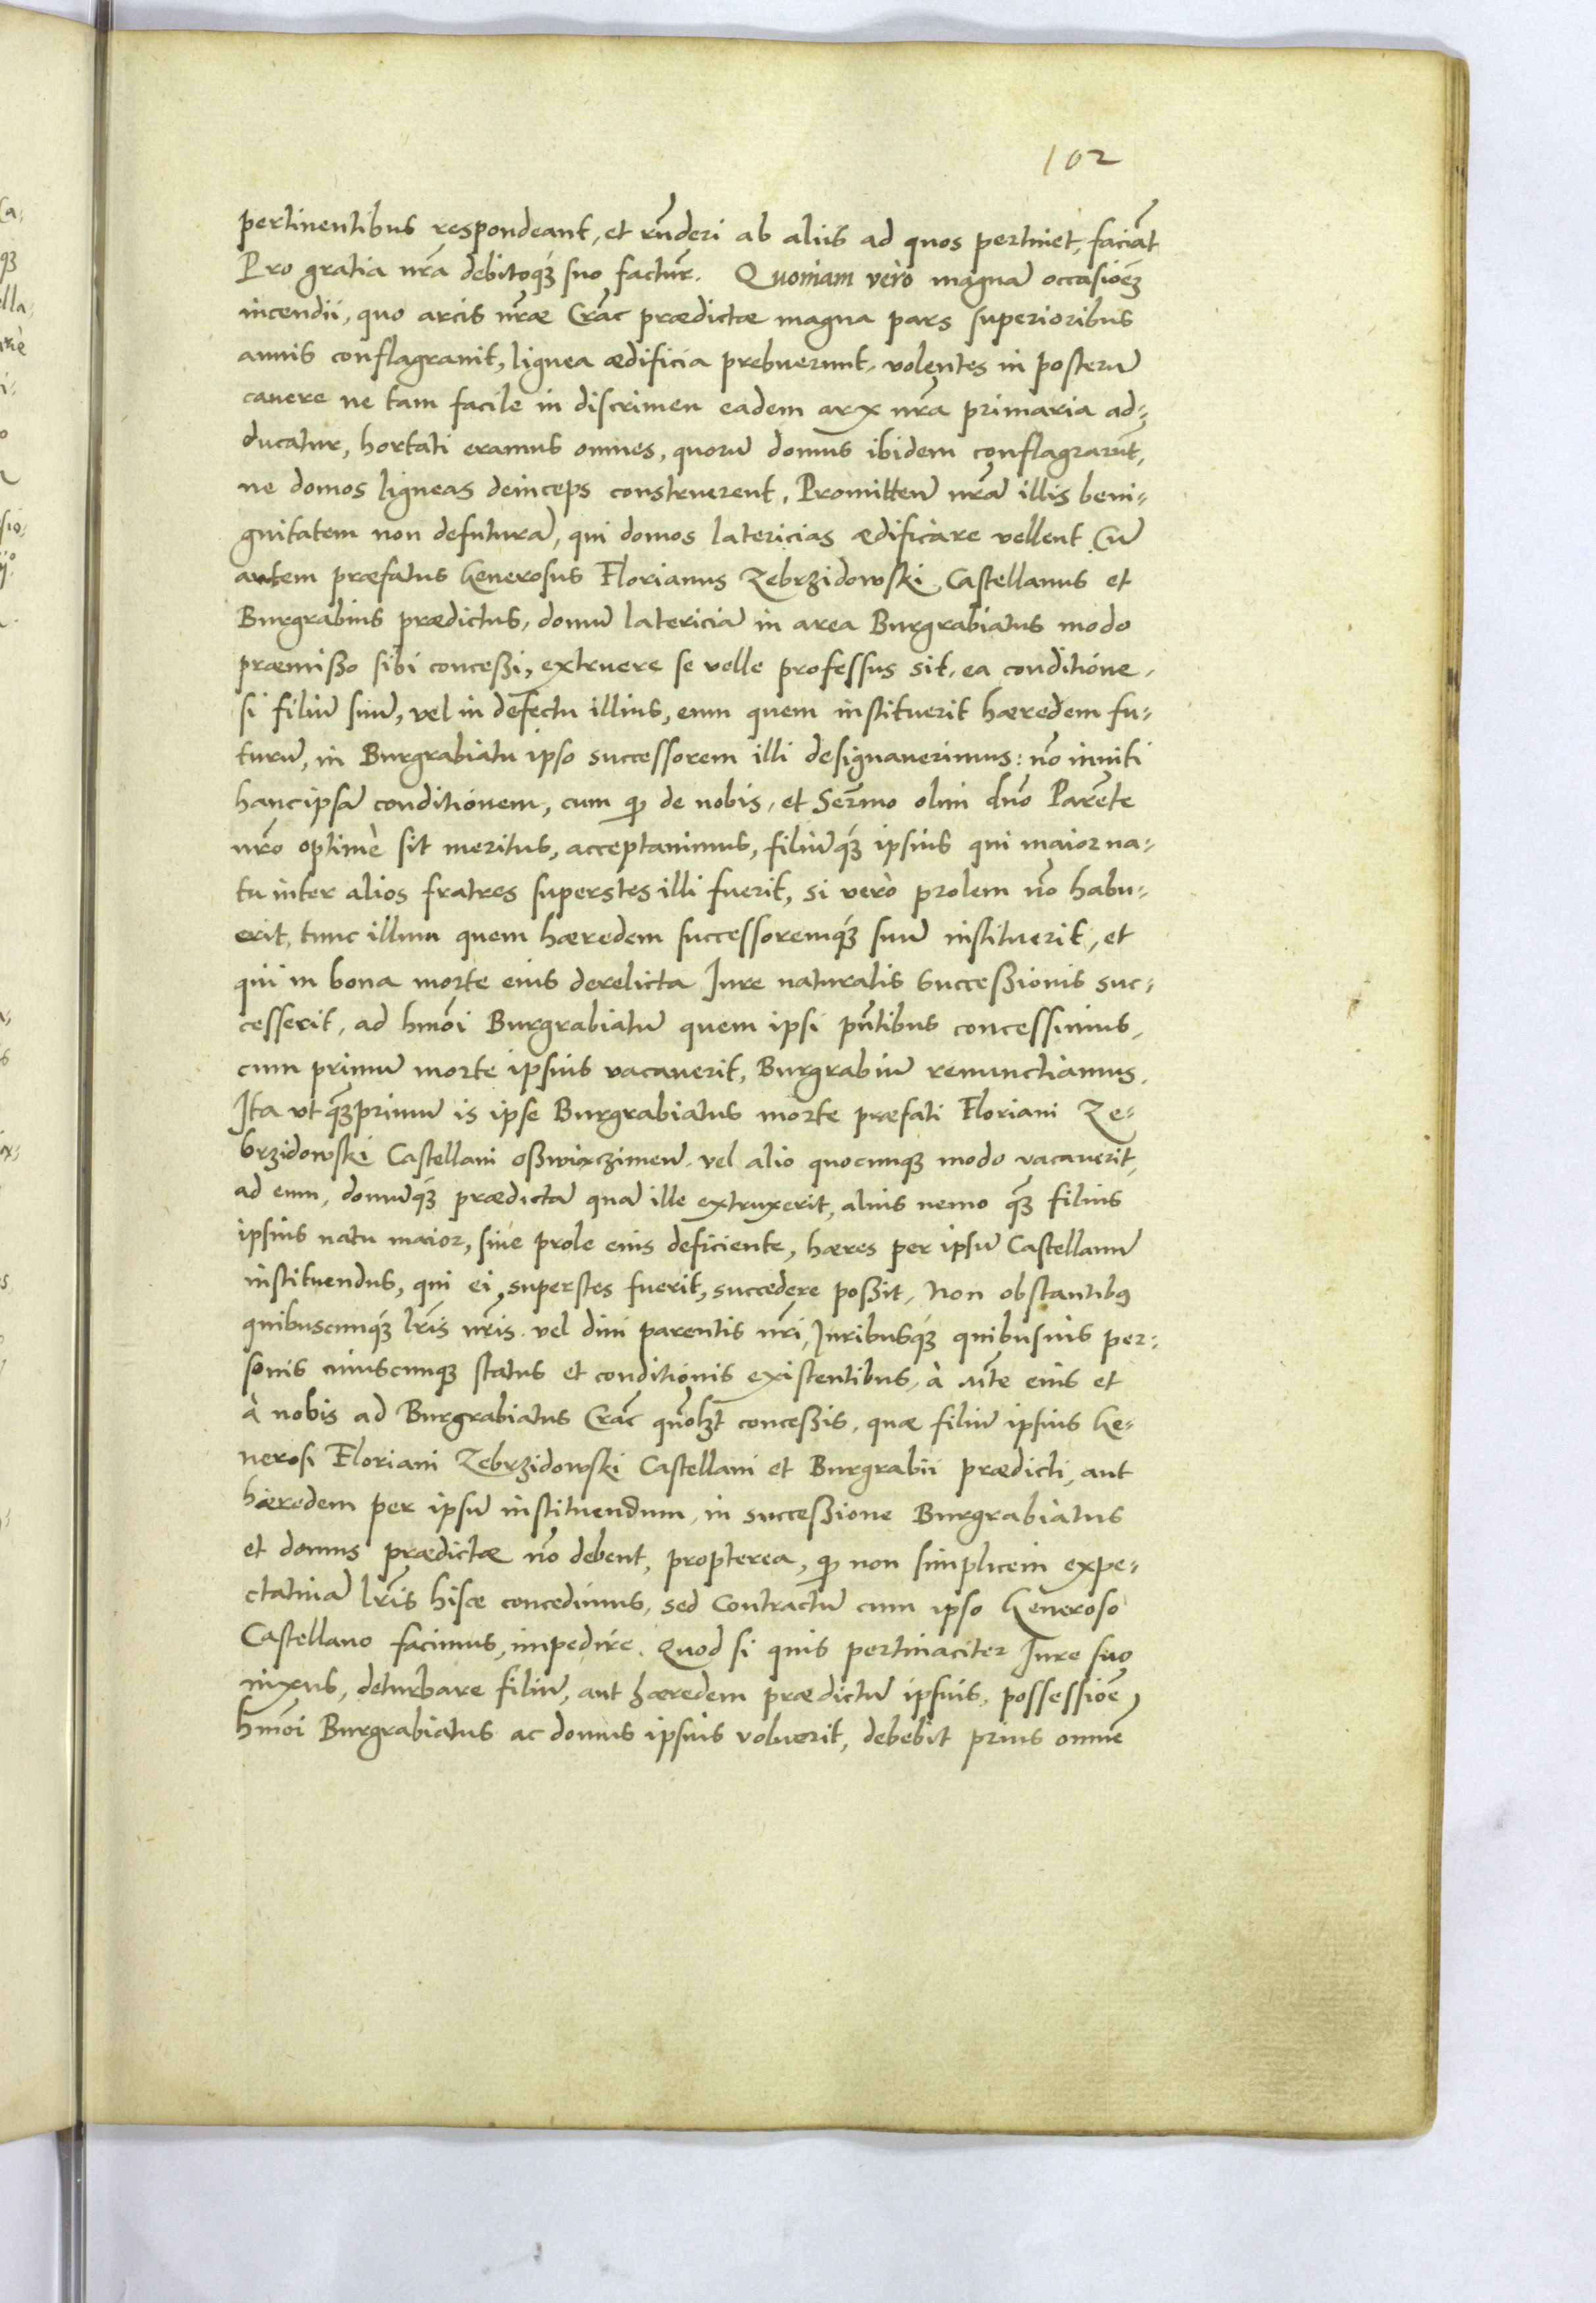 102
pertinentibus respondeant, et rñderi ab aliis ad quos pertinet, faciãt
Pro gratia nrã debitoq́ꝫ suo facturi. Quoniam vero magnã occasiõeꝫ
incendii, quo arcis nrãe Crãc prædictæ magna pars superioribus
annis conflagravit, lignea ædificia prebuerunt, volentes in posterũ
cavere ne tam facile in discrimen eadem arx nrã primaria ad-
ducatur, hortati eramus omnes, quorũ domus ibidem conflagrarũt,
ne domos ligneas deinceps construerent, Promitteñ nrãm illis beni-
gnitatem non defuturã, qui domos latericias ædificare vellent Cũ
autem præfatus Generosus Florianus Zebrzidowski Castellanus et
Burgrabius prædictus, domũ latericiã in area Burgrabiatus modo
præmißo sibi conceßi, extruere se velle professus sit, ea conditione,
si filiũ suũ, vel in defectu illius, eum quem instituerit hæredem fu-
turũ, in Burgrabiatu ipso successorem illi designaverimus: nõ inviti
hanc ipsã conditionem, cum ꝙ de nobis, et Ser̃mo olim dño Parẽte
nrõ optimè sit meritus, acceptavimus, filiũq́ꝫ ipsius qui maior na-
tu inter alios fratres superstes illi fuerit, si verò prolem nõ habu-
erit, tunc illum quem hæredem successoremq́ꝫ suũ instituerit, et
qui in bona morte eius derelicta Jure naturalis Succeßionis suc-
cesserit, ad hmõi Burgrabiatũ quem ipsi pñtibus concessimus,
cum primũ morte ipsius vacaverit, Burgrabiũ renunctiamus.
Ita vt q̃ꝫprimũ is ipse Burgrabiatus morte præfati Floriani Ze-
brzidowski Castellani oßwięczimeñ. vel alio quocunqꝫ modo vacaverit,
ad eum, domũq́ꝫ prædictã quã ille extruxerit, alius nemo q̃ꝫ filius
ipsius natu maior, sive prole eius deficiente, hæres per ipsũ Castellanũ
instituendus, qui ei superstes fuerit, succedere poßit, Non obstantibꝰ
quibuscunq́ꝫ lrĩs nrĩs. vel divi parentis nrĩ, Juribusq́ꝫ quibusvis per-
sonis cuiuscunqꝫ status et conditionis existentibus, à Mte eius et
à nobis ad Burgrabiatus Crãc quõlꝫt conceßis, quæ filiũ ipsius Ge-
nerosi Floriani Zebrzidowski Castellani et Burgrabii prædicti, aut
hæredem per ipsũ instituendum, in succeßione Burgrabiatus
et domus prædictæ nõ debent, propterea, ꝙ non simplicem expe-
ctativã lrĩs hisce concedimus, sed Contractũ cum ipso Generoso
Castellano facimus, impedire. Quod si quis pertinaciter Jure suo
nixus, deturbare filiũ, aut hæredem prædictũ ipsius, possessiõe
hmõi Burgrabiatus ac domus ipsius voluerit, debebit prius omnẽ